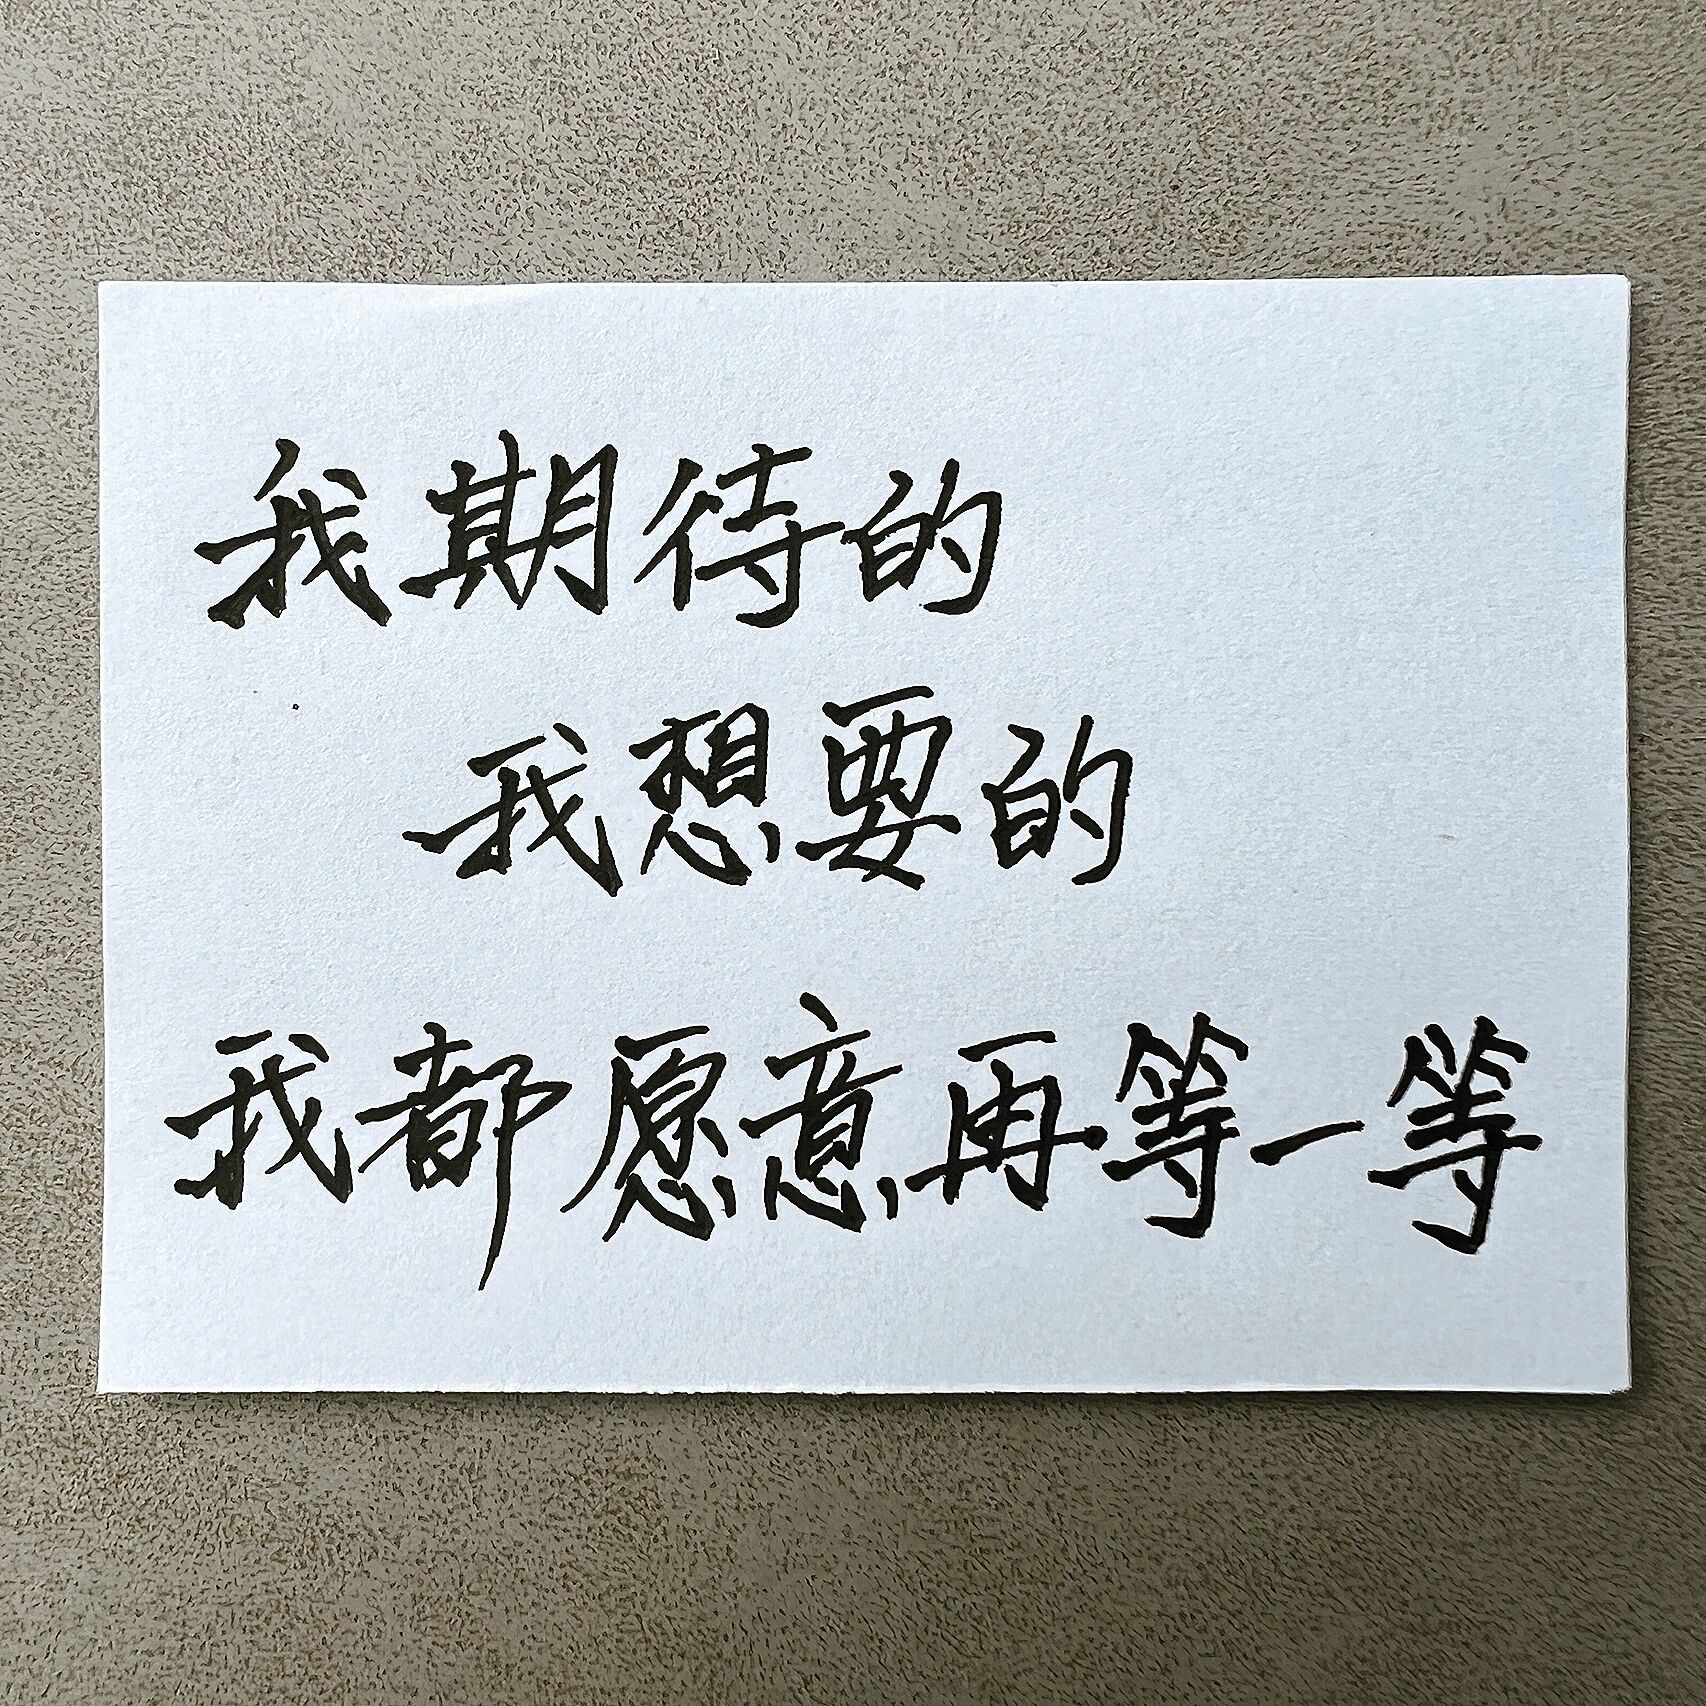 我期待的
我想要的
我都愿意再等一等